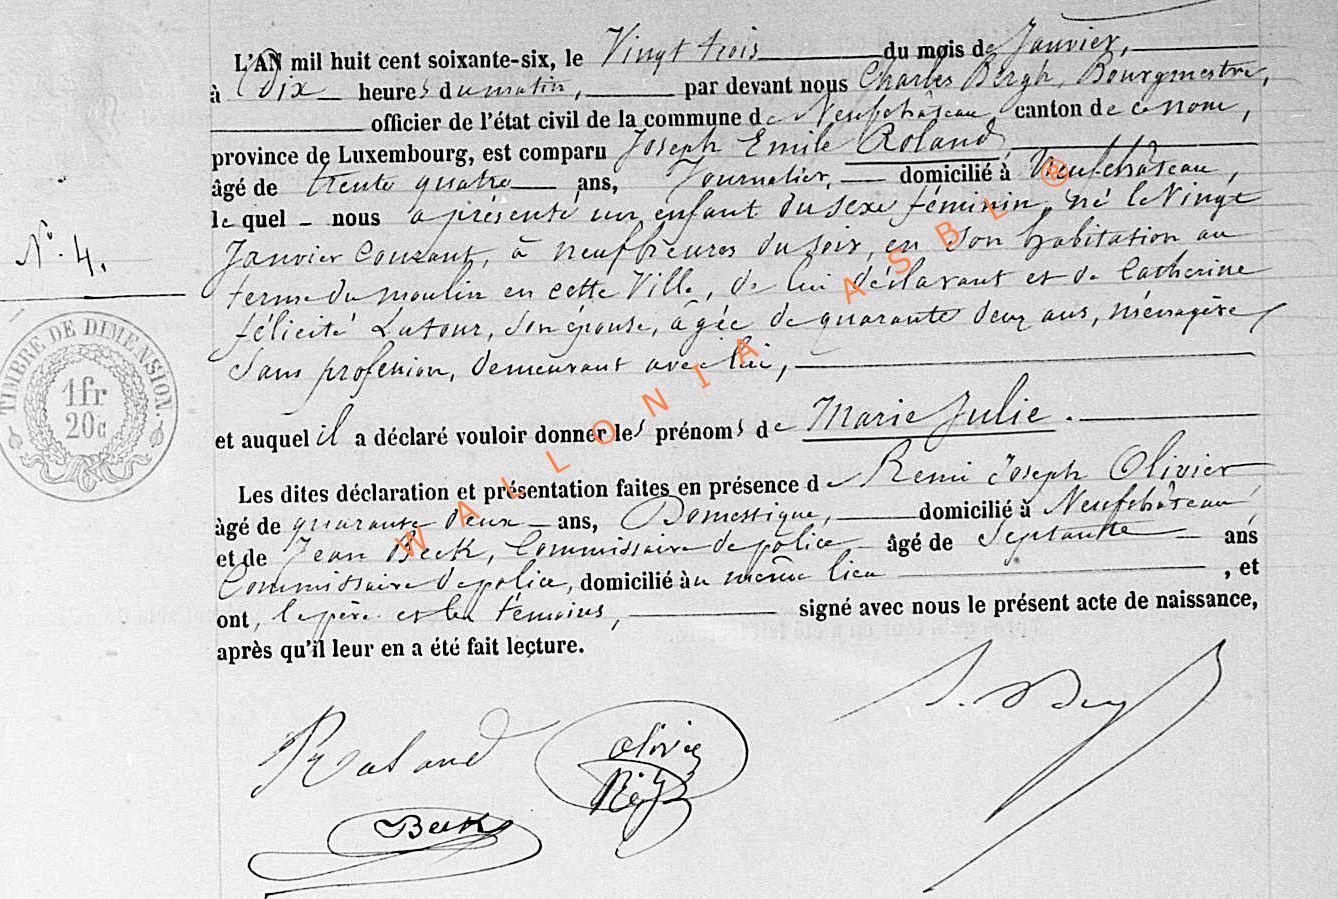 L'AN mil huit cent soixante-six, le Vingt trois du mois de Janvier,
à Dix heures du matin, par devant nous Charles Bergh, Bourgmestre,
officier de l'état civil de la commune de Neufchâteau, canton de ce nom,
province de Luxembourg, est comparu Joseph Emile Roland
âgé de trente quatre ans, Journalier, domicilié à Neufchâteau,
lequel nous a présenté un enfant du sexe féminin, né le Vingt
Janvier Courant, à neuf heures du soir, en son habitation au
terme du moulin en cette Ville, de lui déclarant et de Catherine
félicité Latour, son épouse, âgée de quarante deux ans, ménagère,
Sans profession, demeurant avec lui,
N°. 4.
TIMBRE DE DIMENSION.
1 fr
20 c
et auquel il a déclaré vouloir donner les prénoms de Marie Julie.
Les dites déclaration et présentation faites en présence de Remi Joseph Olivier
âgé de quarante deux ans, Domestique, domicilié à Neufchâteau,
et de Jean Beck, Commissaire de police âgé de Septante ans
Commissaire de police, domicilié au même lieu , et
ont, le père et les témoins, signé avec nous le présent acte de naissance,
après qu'il leur en a été fait lecture.
Roland
Olivier
Beck
WALLONIA ASBL ®